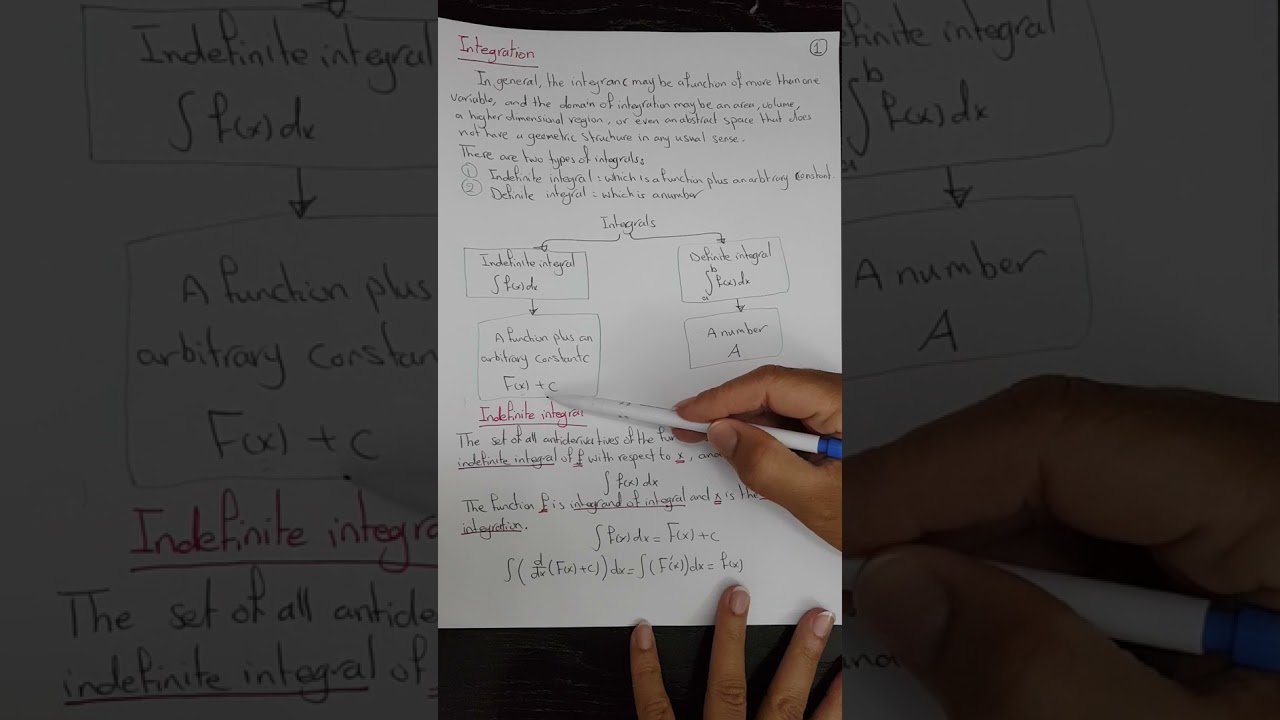 Integration
1
In general, the integranc may be a function of more than one
variable, and the domain of integration may be an area, volume,
a higher dimensional region, or even an abstract space that does
not have a geometric structure in any usual sense.
There are two types of integrals:
① Indefinite integral: which is a function plus an arbitrary constant.
② Definite integral: which is a number
Integrals
Indefinite integral
∫f(x)dx
Definite integral
∫_a^b f(x)dx
A function plus an
arbitrary constantc
F(x)+c
A number
A
Indefinite integral
The set of all antiderivatives of the
indefinite integral of f with respect to x, and
∫f(x)dx
The function f is integrand of integral and x is the
integration.
∫f(x)dx=F(x)+c
∫(d/dx(F(x)+c))dx=∫(F'(x))dx=f(x)